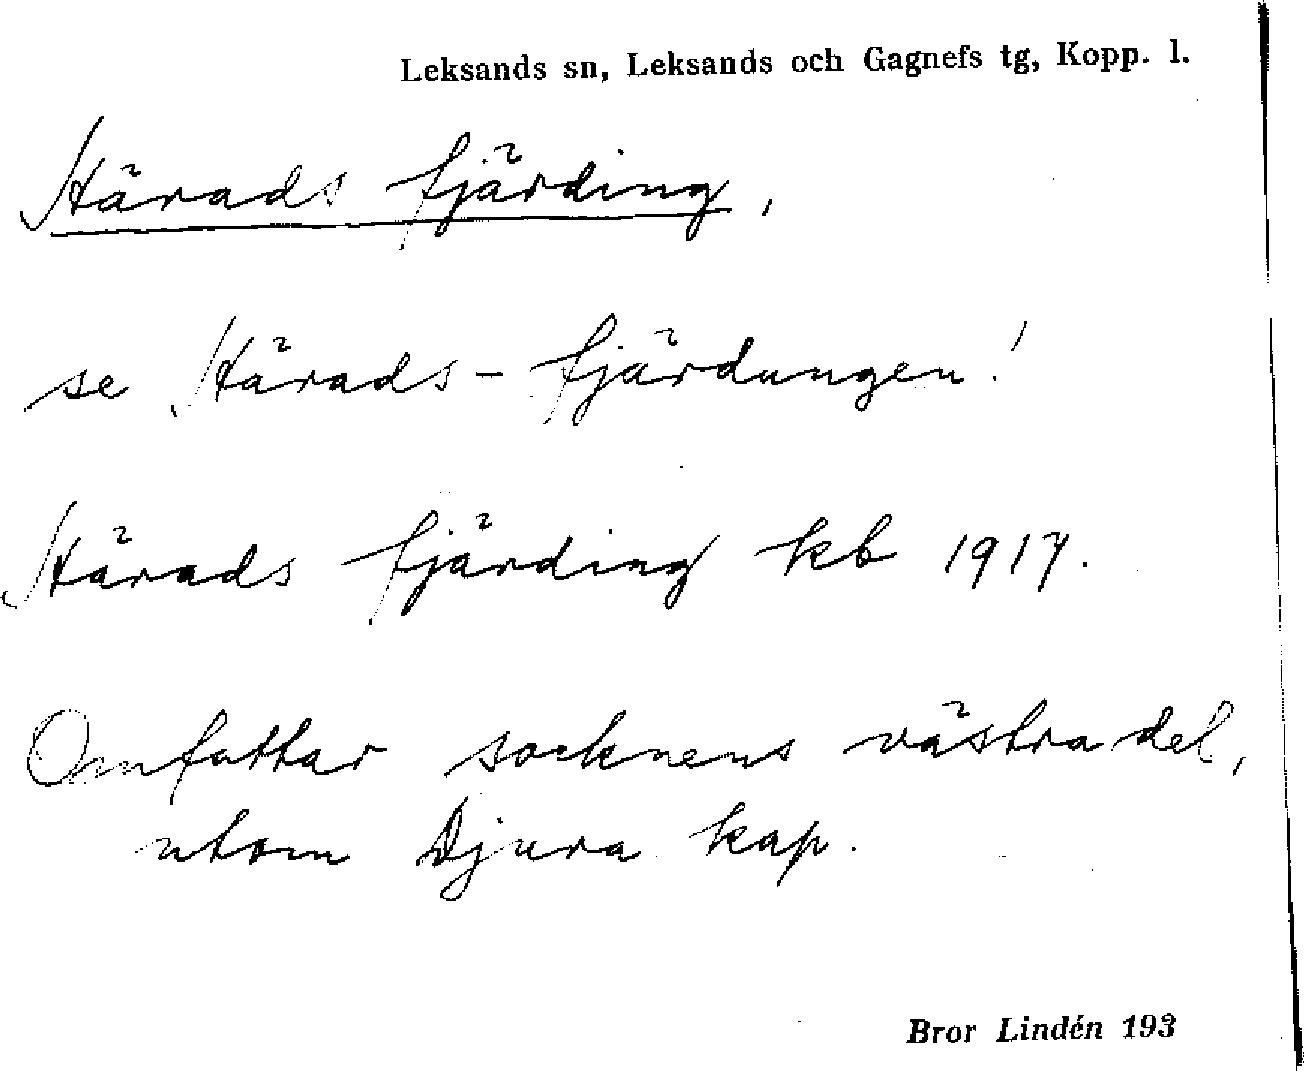 Leksands sn, Leksands och Gagnefs tg, Kopp. l.
Härads fjärding,
se Härads-fjärdungen!
Härads fjärding kb 1917.
Omfattar socknens västra del,
utom Djura kap.
Bror Lindén 193